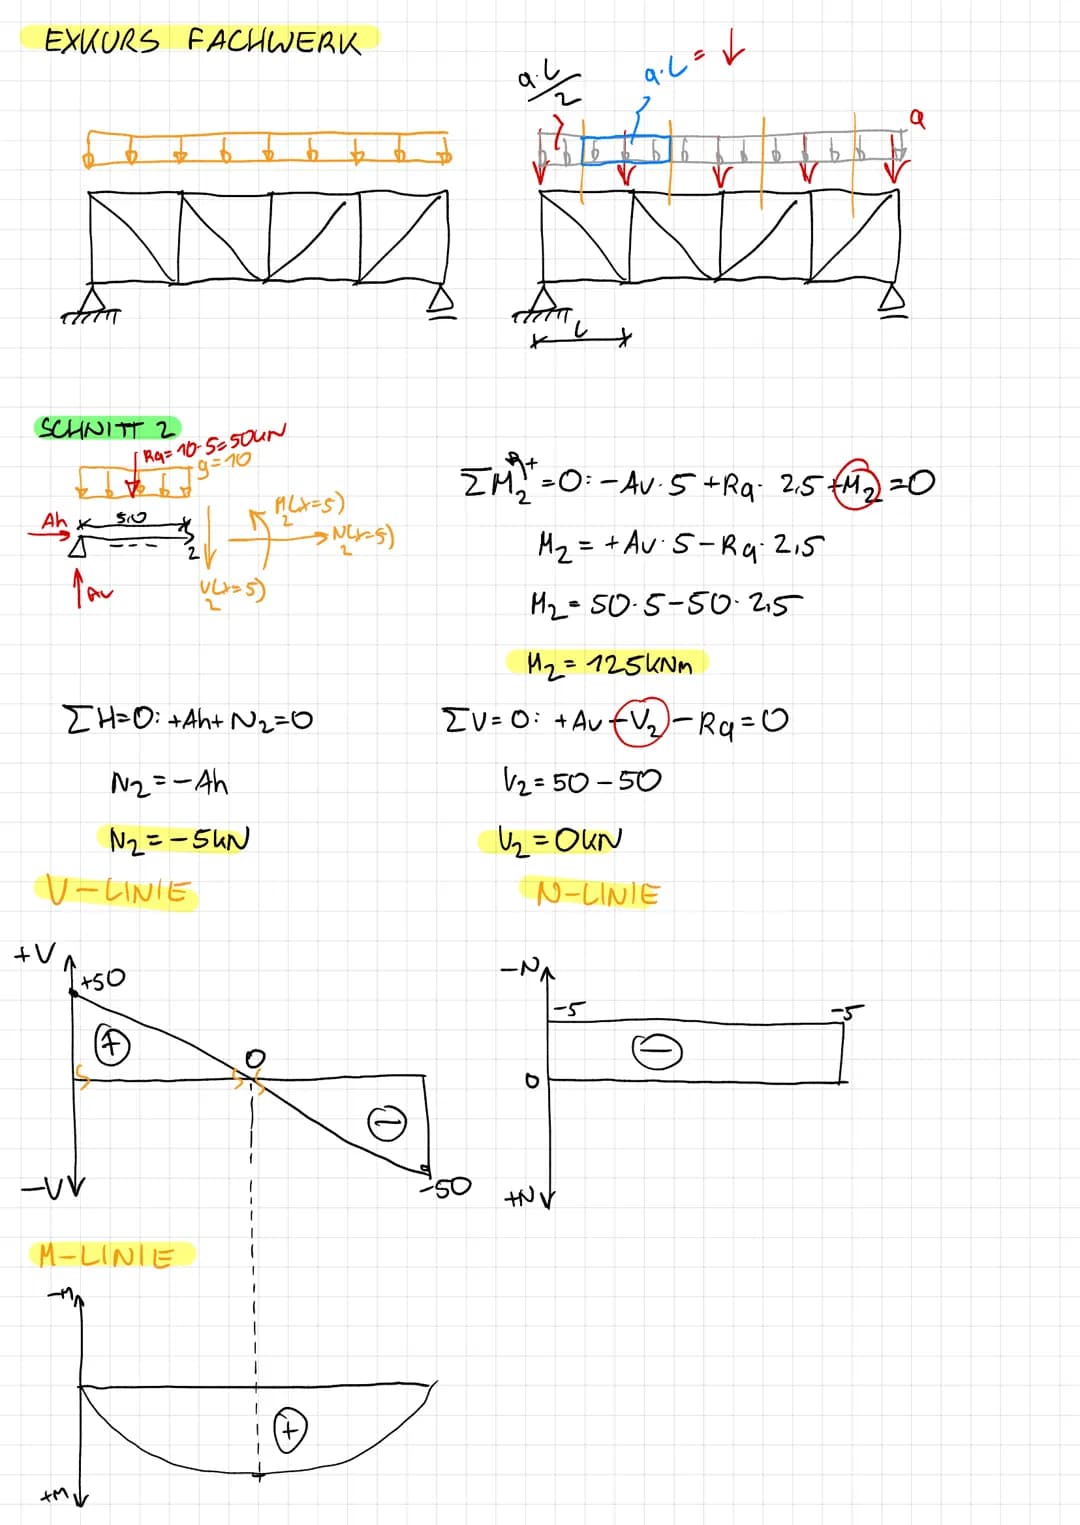 EXKURS FACHWERK
q·L/2
q·L = ↓
q
L
SCHNITT 2
Rq = 10·5 = 50kN
q = 10
Ah
5,0
2
Av
M₂(x=5)
N₂(x=5)
V₂(x=5)
ΣM₂ = 0: -Av·5 + Rq·2,5 + M₂ = 0
M₂ = +Av·5 - Rq·2,5
M₂ = 50·5 - 50·2,5
M₂ = 125kNm
ΣH=0: +Ah + N₂ = 0
N₂ = -Ah
N₂ = -5kN
ΣV=0: +Av - V₂ - Rq = 0
V₂ = 50 - 50
V₂ = 0kN
V-LINIE
N-LINIE
+V
+50
+
0
-
-50
-V
-N
-5
-5
-
0
+N
M-LINIE
-M
+
+M